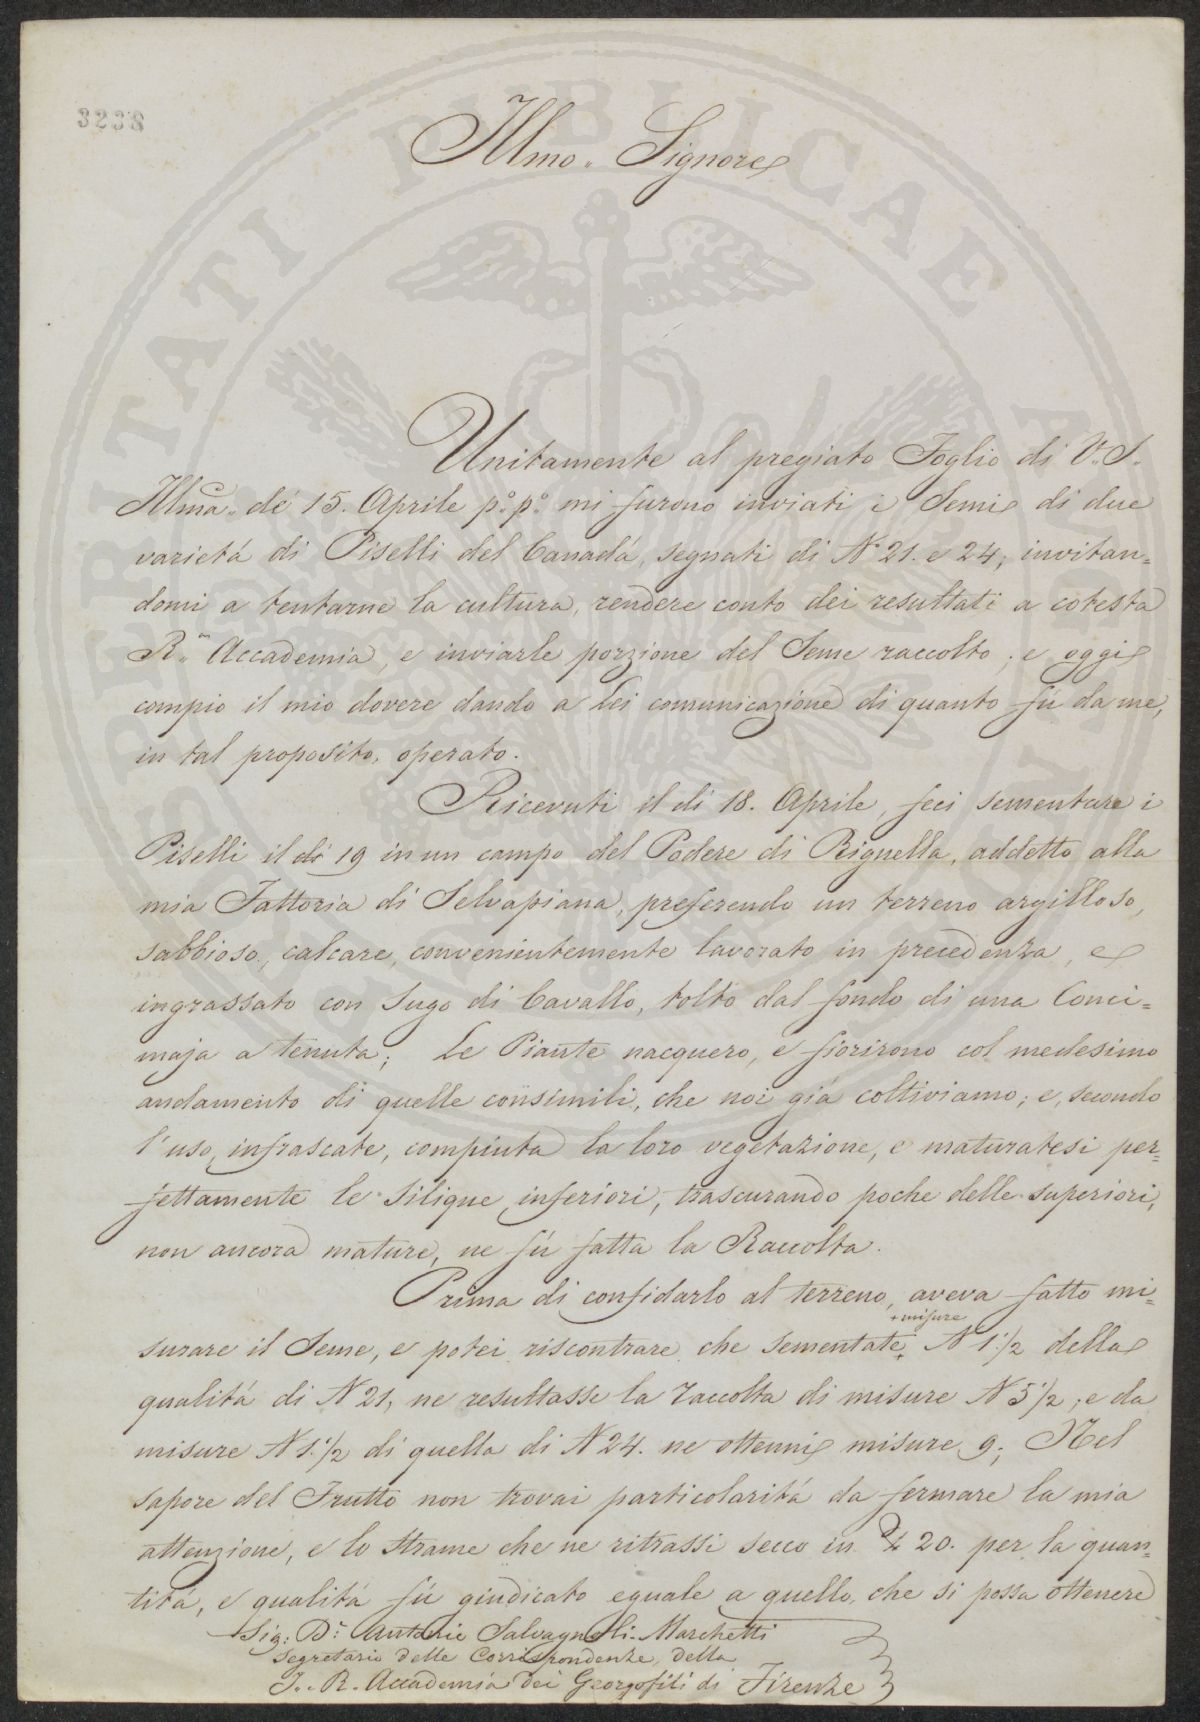 3238
Illmo. Signore
Unitamente al pregiato Foglio di V. S.
Illma. de' 15. Aprile p.° p.° mi furono inviati i Semi di due
varietá di Piselli del Canadá, segnati di N° 21. e 24, invitan=
domi a tentarne la cultura, rendere conto dei resultati a cotesta
R. Accademia, e inviarle porzione del Seme raccolto; e oggi
compio il mio dovere dando a Lei comunicazione di quanto fú da me,
in tal proposito, operato.
Ricevuti il di 18. Aprile, feci sementare i
Piselli il di 19 in un campo del Podere di Rignella, addetto alla
mia Fattoria di Selvapiana, preferendo un terreno argilloso,
sabbioso, calcare, convenientemente lavorato in precedenza, e
ingrassato con Sugo di Cavallo, tolto dal fondo di una Conci=
maja a tenuta; Le Piante nacquero, e fiorirono col medesimo
andamento di quelle consimili, che noi giá coltiviamo; e, secondo
l'uso, infrascate, compiuta la loro vegetazione, e maturatesi per=
fettamente le Silique inferiori, trascurando poche delle superiori,
non ancora mature, ne fú fatta la Raccolta.
Prima di confidarlo al terreno, aveva fatto mi=
+ misure
surare il Seme, e potei riscontrare che sementate + N 1. 1/2 della
qualitá di N 21, ne resultasse la raccolta di misure N 5 1/2; e da
misure N 1. 1/2 di quella di N 24. ne ottenni misure 9; Nel
sapore del Frutto non trovai particolaritá da fermare la mia
attenzione, e lo Strame che ne ritrassi secco in ℔ 20. per la quan=
titá, e qualitá fú giudicato eguale a quello, che si possa ottenere
Sig: Dr. Antonio Salvagnoli-Marchetti
Segretario delle Corrispondenze, della
I. R. Accademia dei Georgofili di Firenze
PROSPERITATI PUBLICAE AUGENDAE